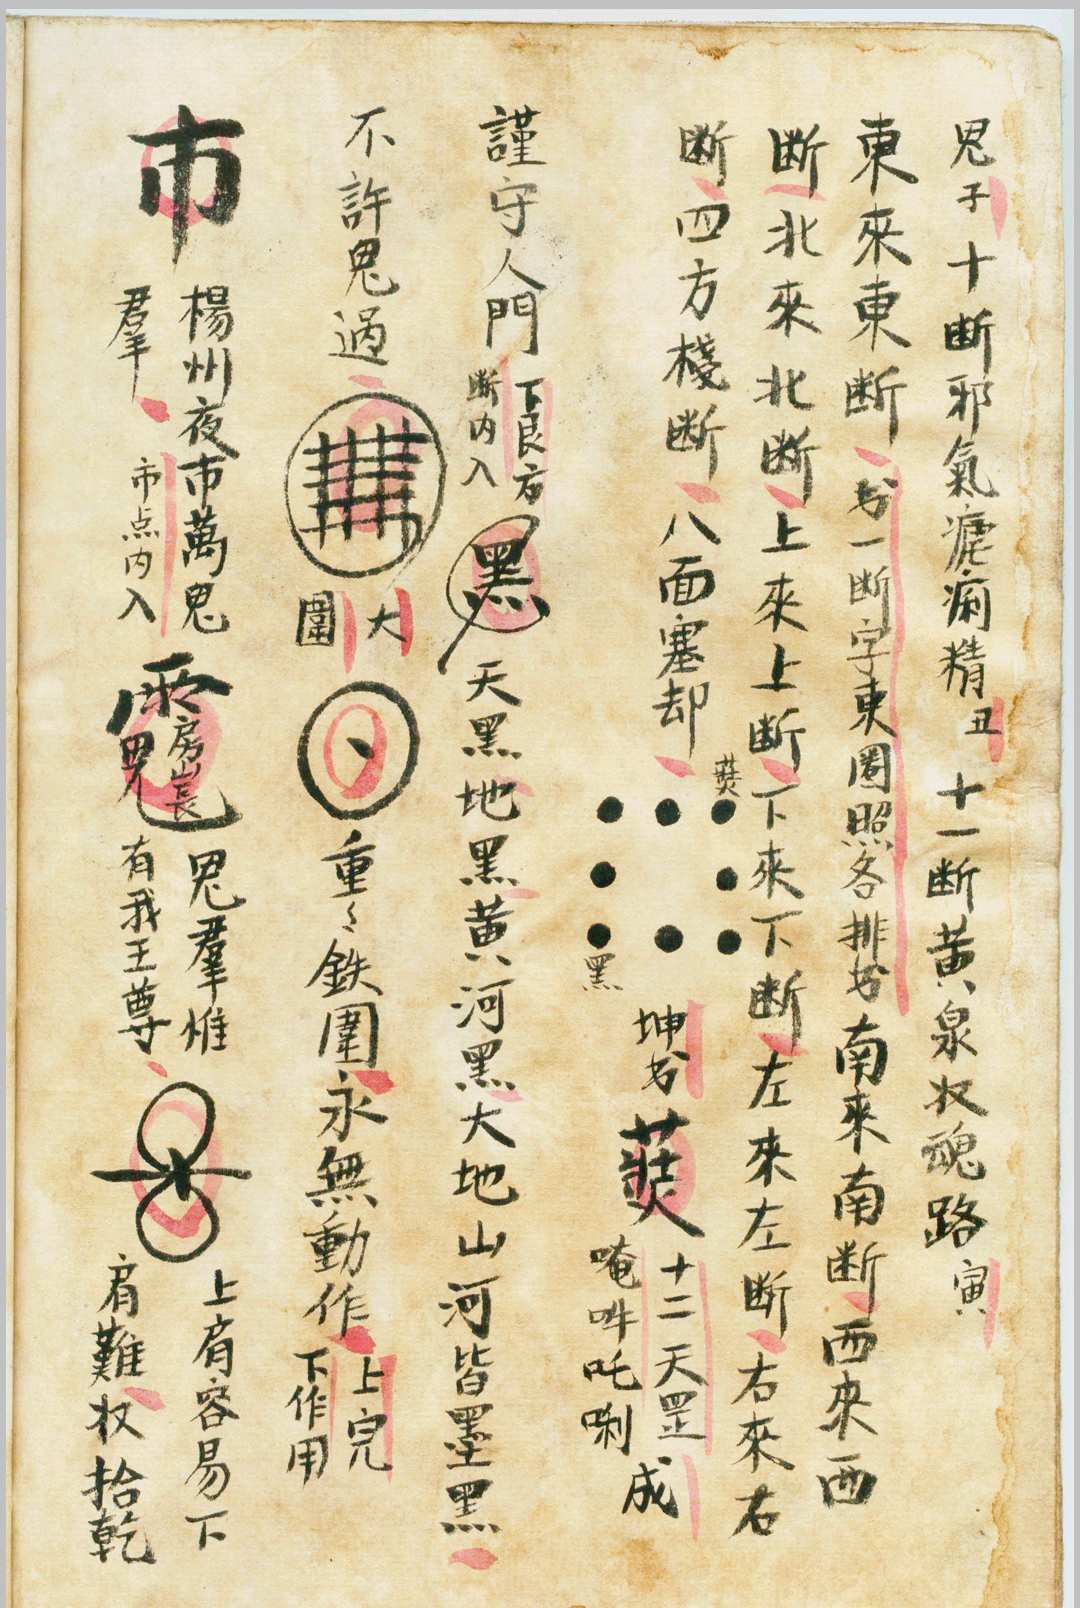 鬼子十断邪氣瘧痢精丑 十一断黃泉收魂路寅
東來東断 一断字東圈照各排 南來南断西來西
断北來北断上來上断下來下断左來左断右來右
断四方棧断八面塞却
黑
坤
十二天罡
唵吽吒唎
成
謹守人門
下艮方
断内入
黑
天黑地黑黃河黑大地山河皆墨黑
不許鬼過
大
圍
重々鉄圍永無動作
上完
下作用
市
楊州夜市萬鬼
羣
市点内入
鬼羣惟
有我王尊
上肩容易下
肩難收拾乾